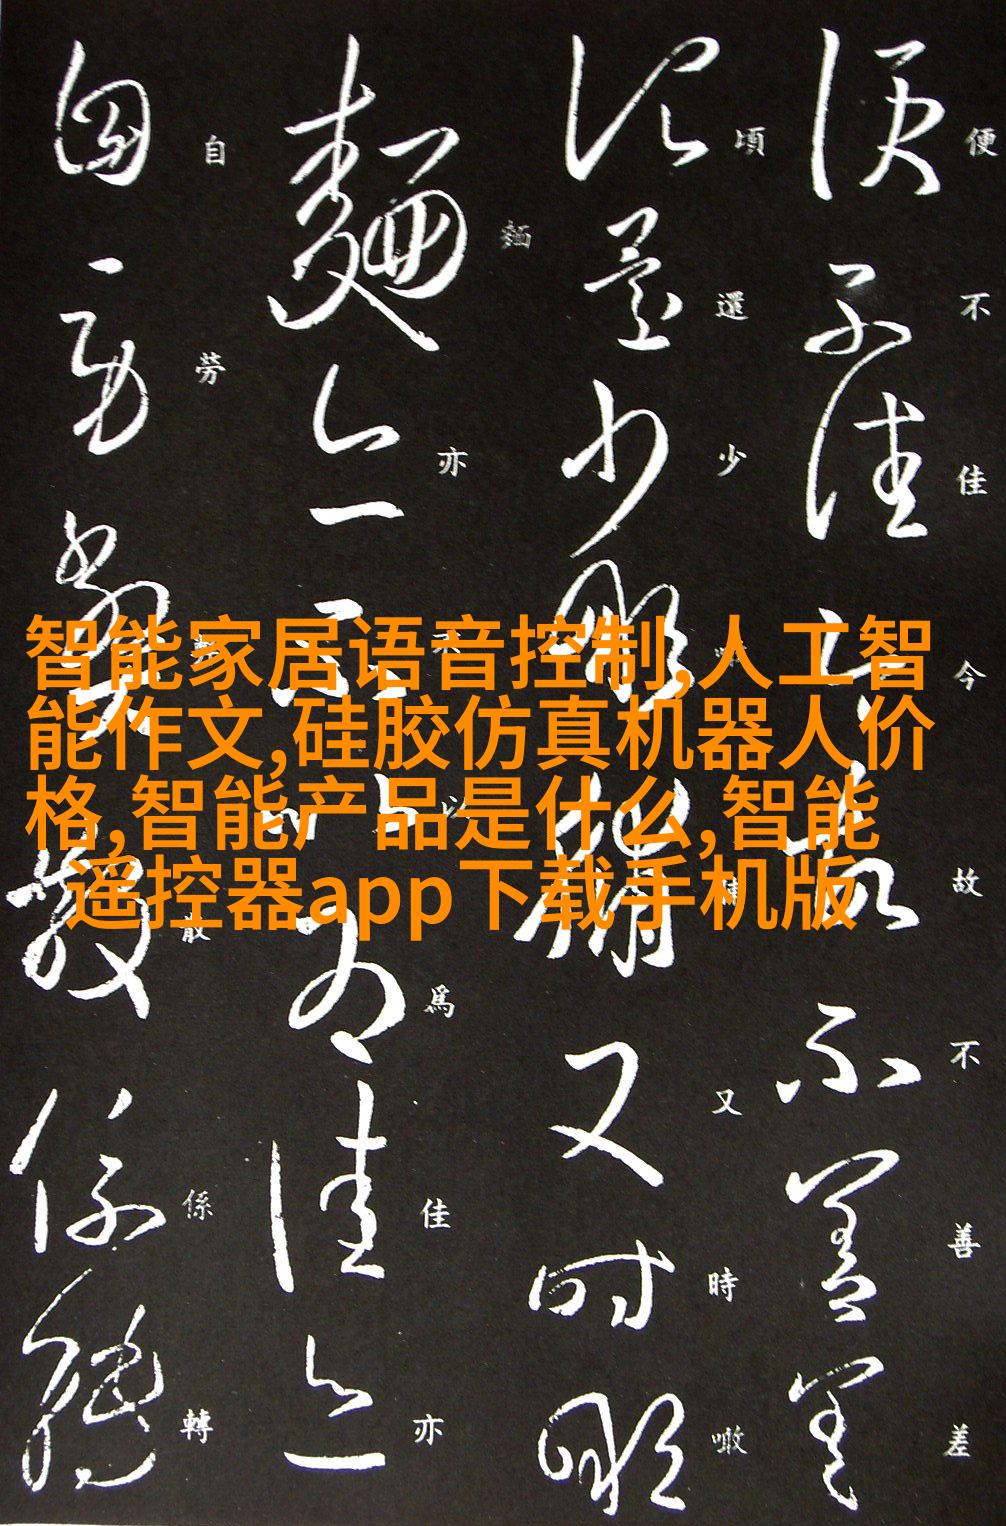 智能家居语音控制,人工智
能作文,硅胶仿真机器人价
格,智能产品是什么,智能
遥控器app下载手机版
便不佳今故不善差
頃還少噉又時噉
麵亦不以為佳亦
自勞散係轉